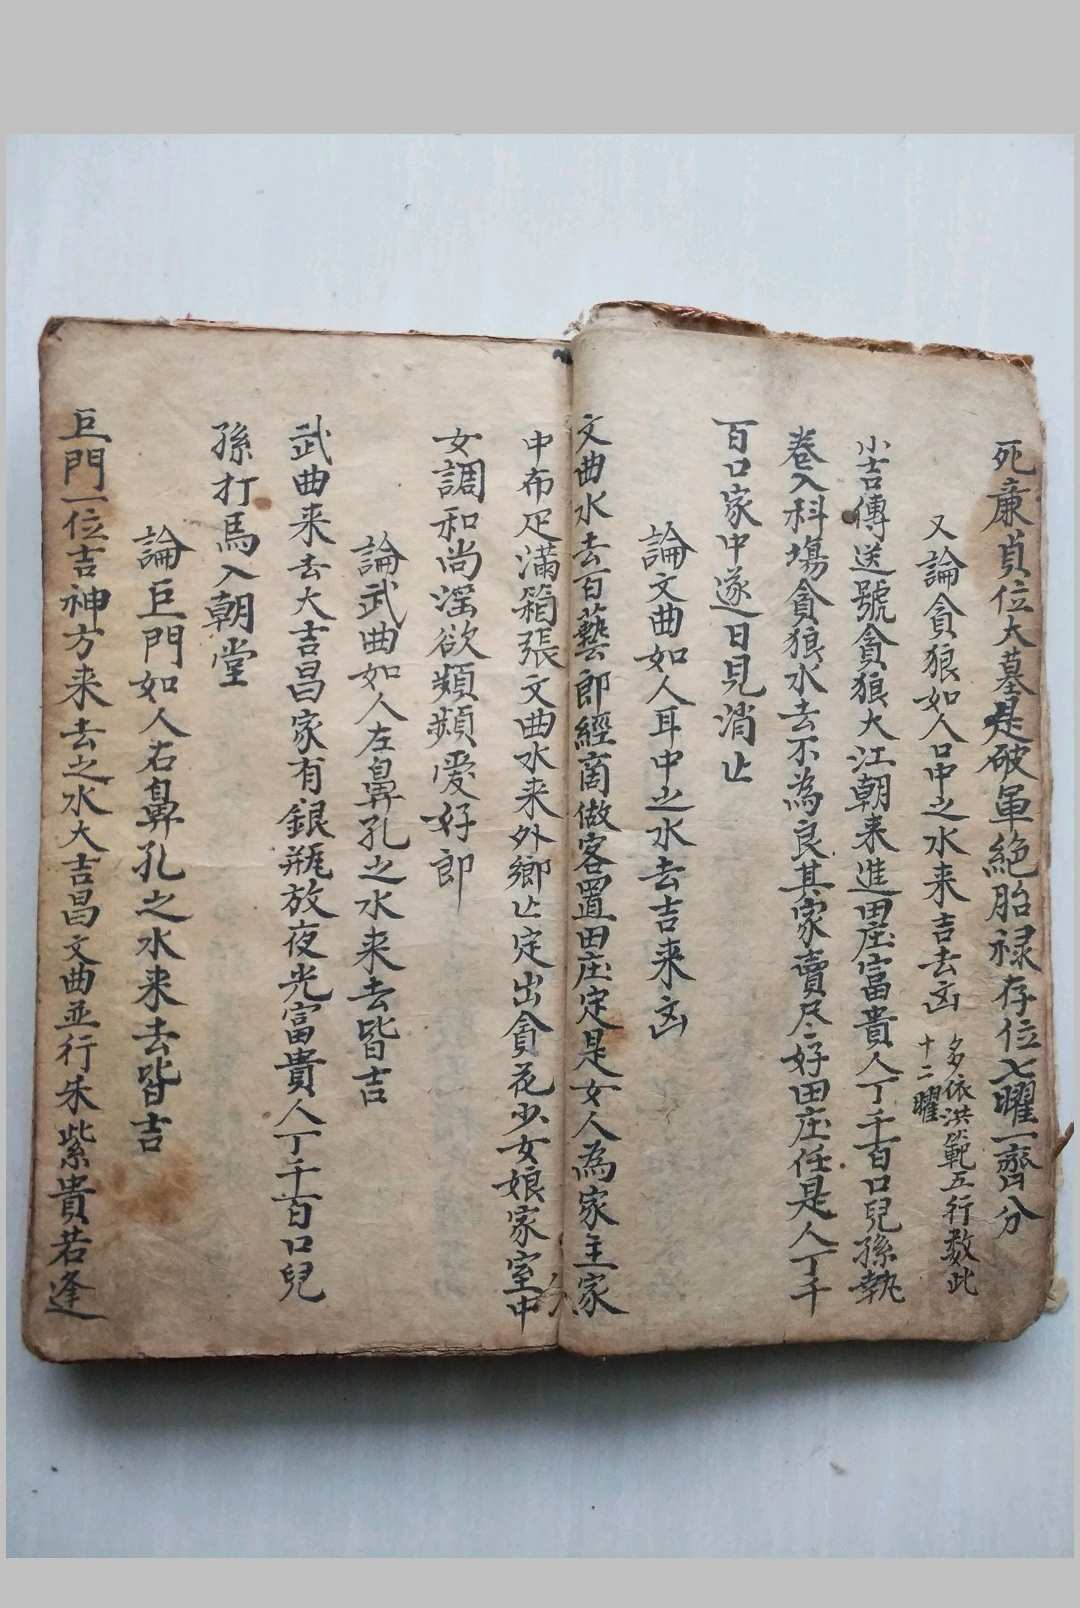 死廉貞位大墓是破軍絕胎禄存位七曜一齊分
又論貪狼如人口中之水来吉去凶
多依洪範五行数此
十二曜
小吉傳送號貪狼大江朝来進田庄富貴人丁千百口兒孫執
卷入科塲貪狼水去不為良其家賣尽好田庄任是人丁千
百口家中遂日見消亡
論文曲如人耳中之水去吉来凶
文曲水去百藝郎經商做客置田庄定是女人為家主家
中布疋滿箱張文曲水来外鄉亡定出貪花少女娘家室中
女調和尚淫欲頻頻愛好郎
論武曲如人左鼻孔之水来去皆吉
武曲来去大吉昌家有銀瓶放夜光富貴人丁千百口兒
孫打馬入朝堂
論巨門如人右鼻孔之水来去皆吉
巨門一位吉神方来去之水大吉昌文曲並行朱紫貴若逢